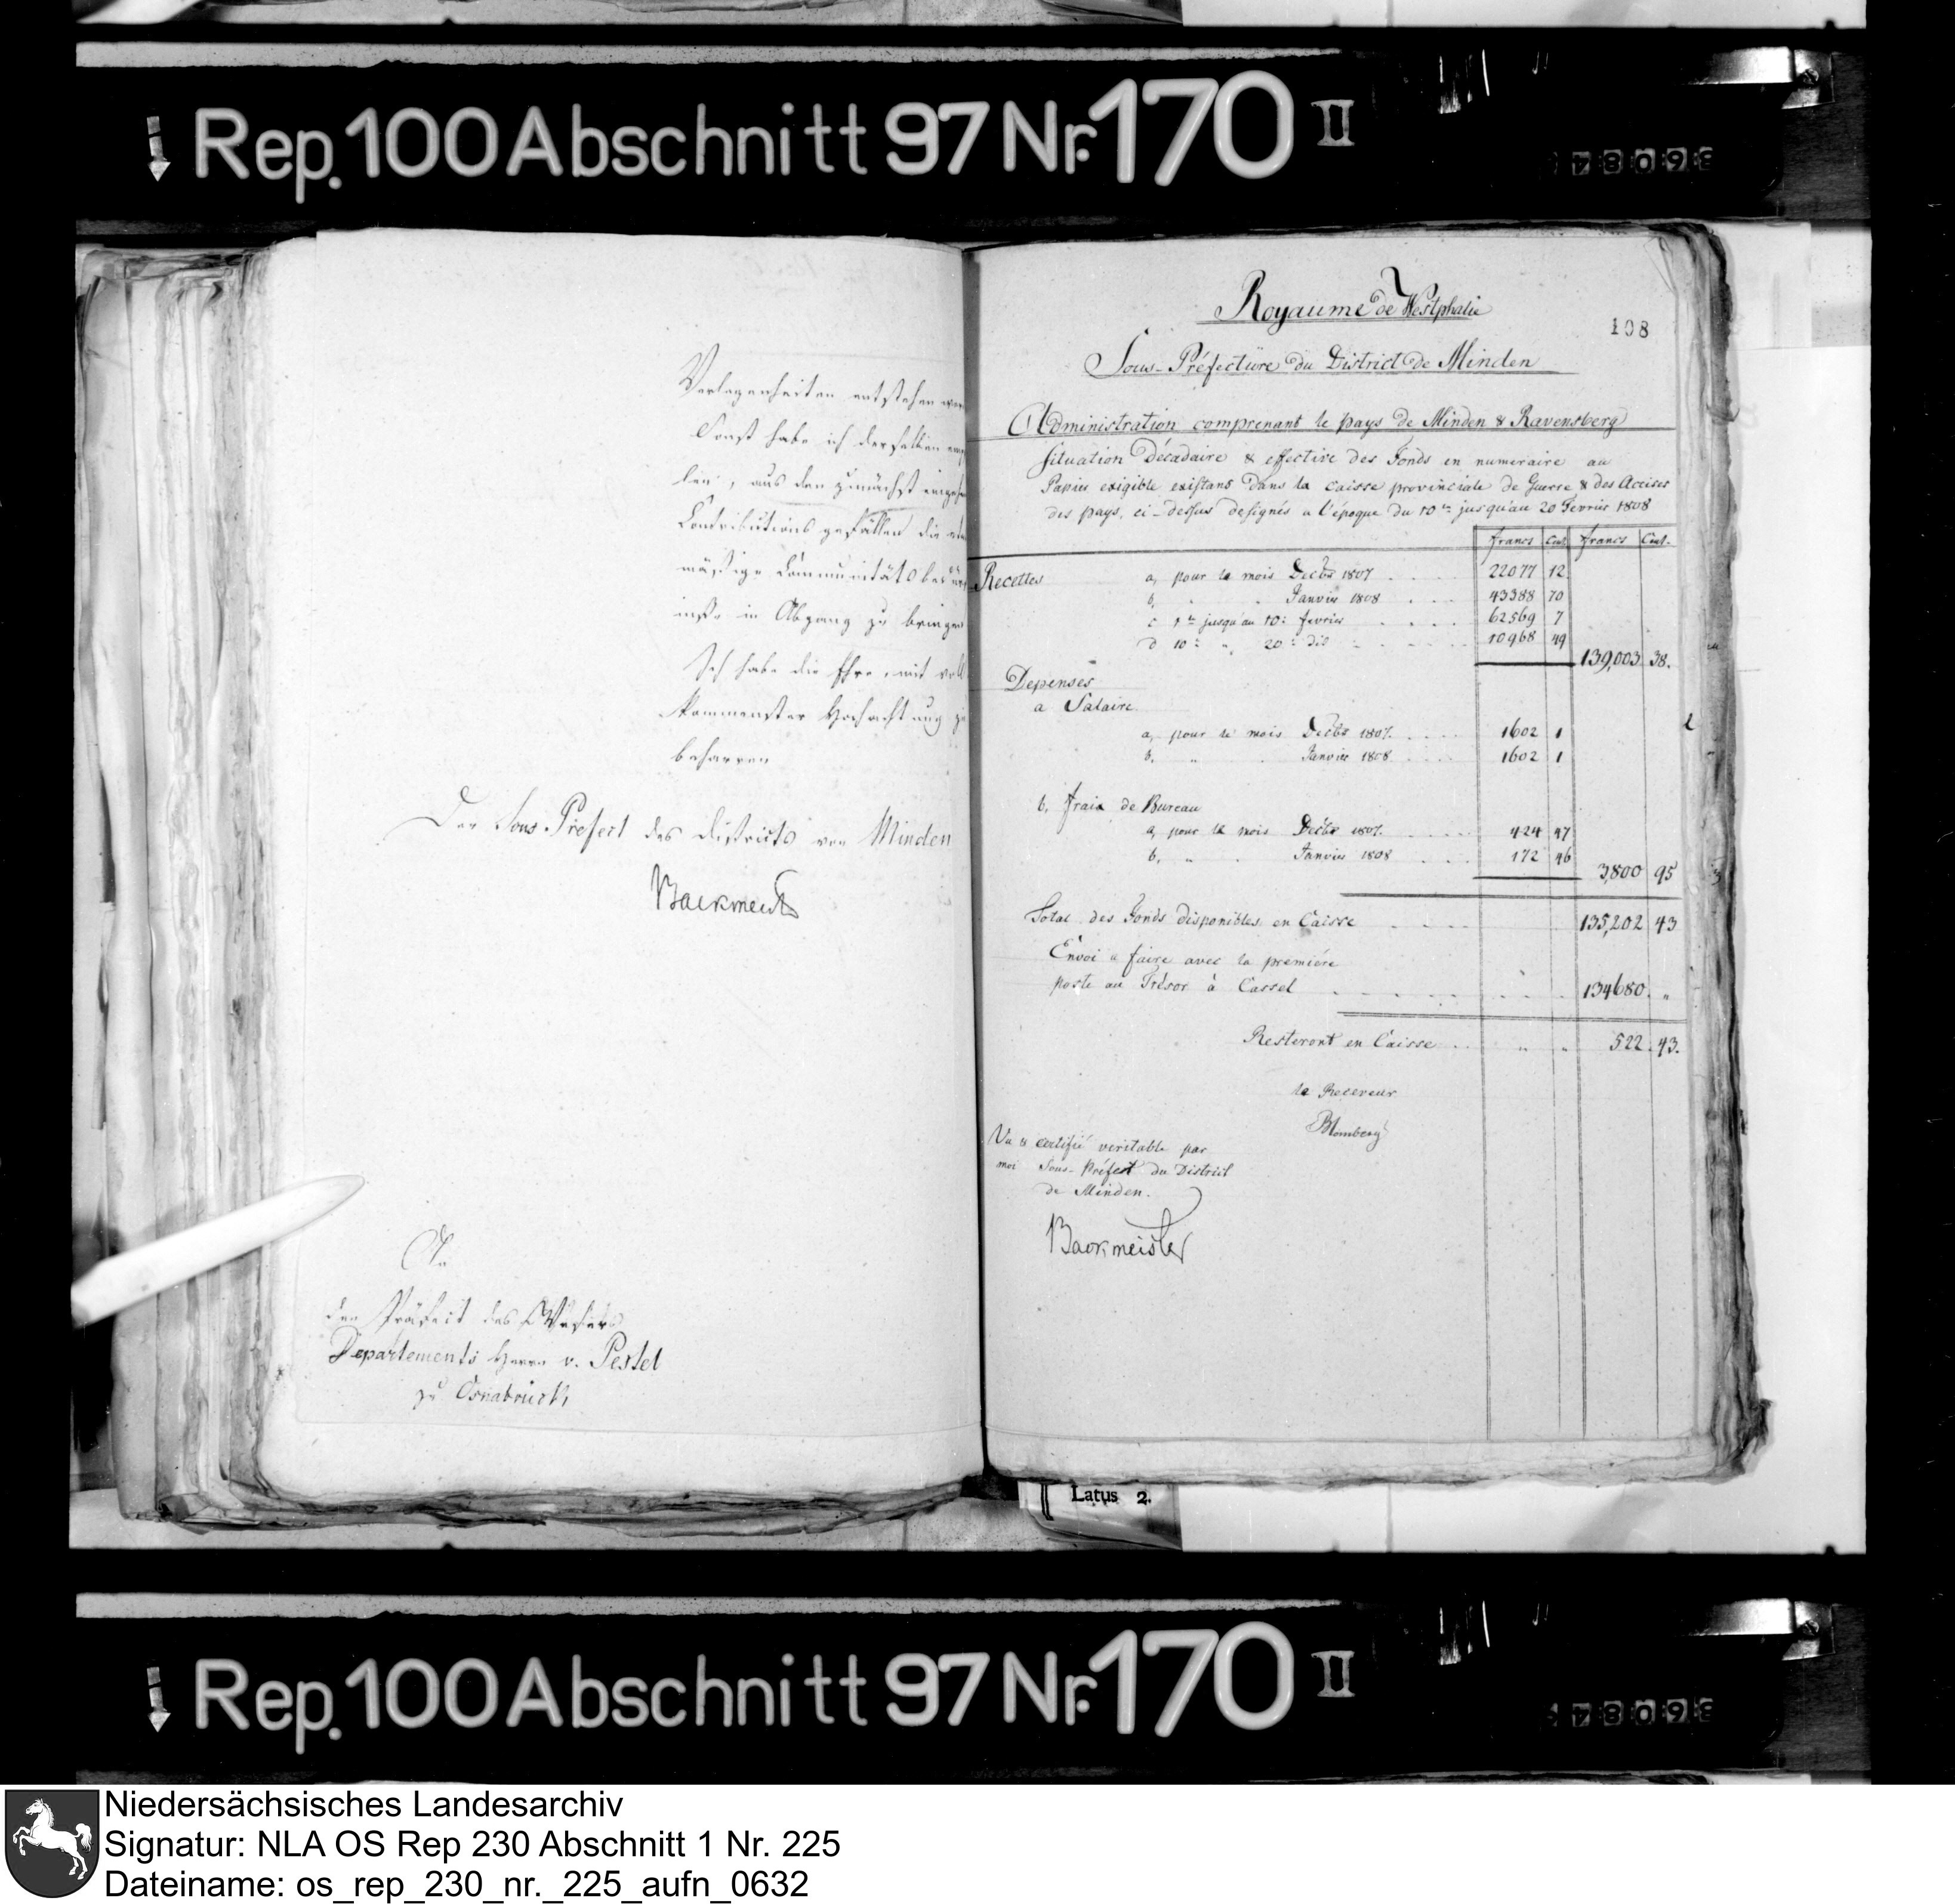 Rep. 100 Abschnitt 97 Nr. 170 II
Verlegenheiten entstehen
Sonst habe ich denselben
len, aus den zunächst
Contributionsgefällen die
mäßige Communitätsbedürf
in Abgang zu bringen
Ich habe die Ehre, mit voll
kommenster Hochachtung zu
beharren
Der Sous Prefect des Districts von Minden
Backmeister
An
den Präfect des Weser
Departements Herrn v. Pestel
zu Osnabrück
Royaume de Westphalie
108
Sous-Préfecture du District de Minden
Administration comprenant le pays de Minden & Ravensberg
Situation Décadaire & effective des Fonds en numeraire au
Papier exigible existans dans la caisse provinciale de Guerre & des Accises
des pays, ci-dessus designés a l'époque du 10 jusqu'au 20 Fevrier 1808
francs Cent. francs Cent.
Recettes a, pour le mois Decbr 1807 22077 12
b, " " Janvier 1808 43388 70
c 1er jusqu'au 10: fevrier 62569 7
d 10: " 20: dit 10968 49
139,003 38.
Depenses
a Salaire
a, pour le mois Decbr 1807. 1602 1
b, " " Janvier 1808 1602 1
b, frais de Bureau
a, pour le mois Decbr 1807. 424 47
b, " " Janvier 1808 172 46
3,800 95
Total des Fonds disponibles en Caisse 135,202 43
Envoi a faire avec la première
poste au Trésor à Cassel 134680. "
Resteront en Caisse " " 522. 43.
le Receveur
Blomberg
Vu & certifié veritable par
moi Sous-Préfect du District
de Minden.
Backmeister
Latus 2.
Rep. 100 Abschnitt 97 Nr. 170 II
Niedersächsisches Landesarchiv
Signatur: NLA OS Rep 230 Abschnitt 1 Nr. 225
Dateiname: os_rep_230_nr._225_aufn_0632